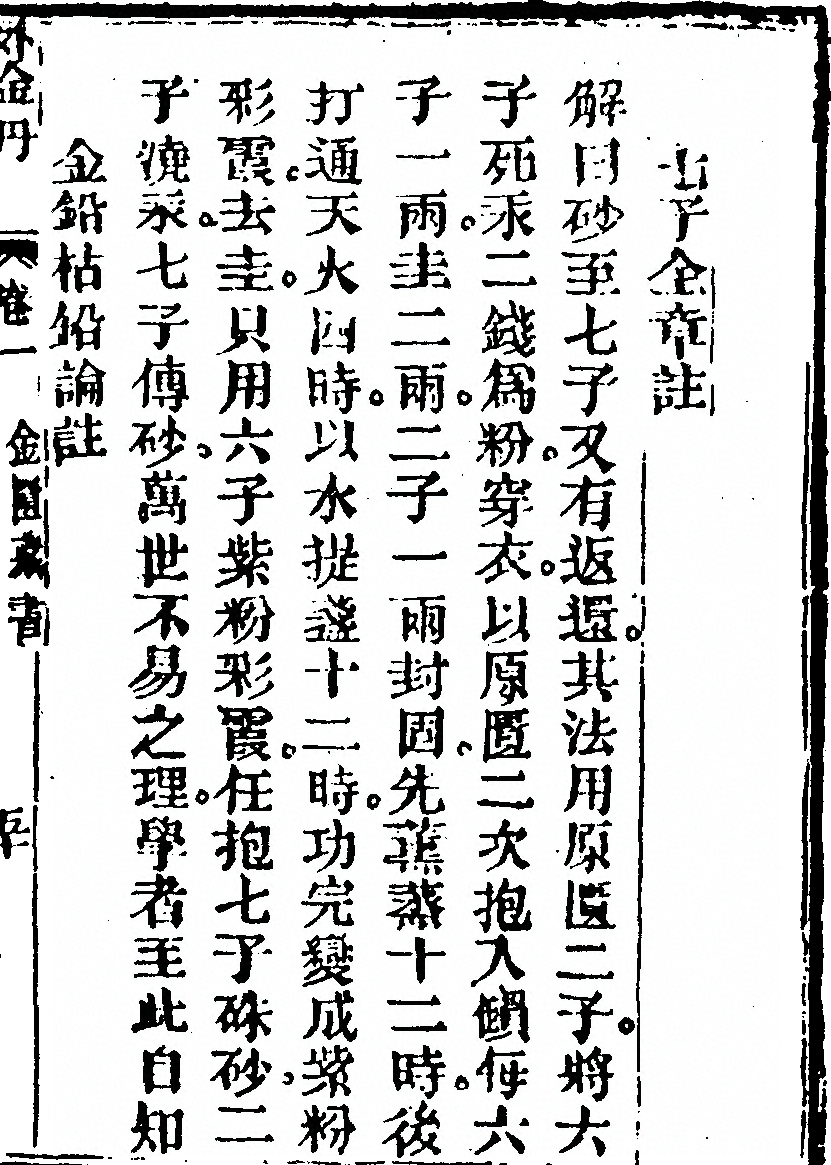 七子金章註
解曰砂至七子又有返還。其法用原匱二子。將六
子死汞二錢爲粉。穿衣。以原匱二次抱入鍋每六
子一兩。圭二兩。二子一兩封固。先蘸蒸十二時。後
打通天火四時。以水提盞十二時。功完變成紫粉
彩霞。去圭。只用六子紫粉彩霞。任抱七子硃砂。二
子澆汞。七子傳砂。萬世不易之理。學者至此自知
金鉛枯鉛論註
外金丹
卷一
金